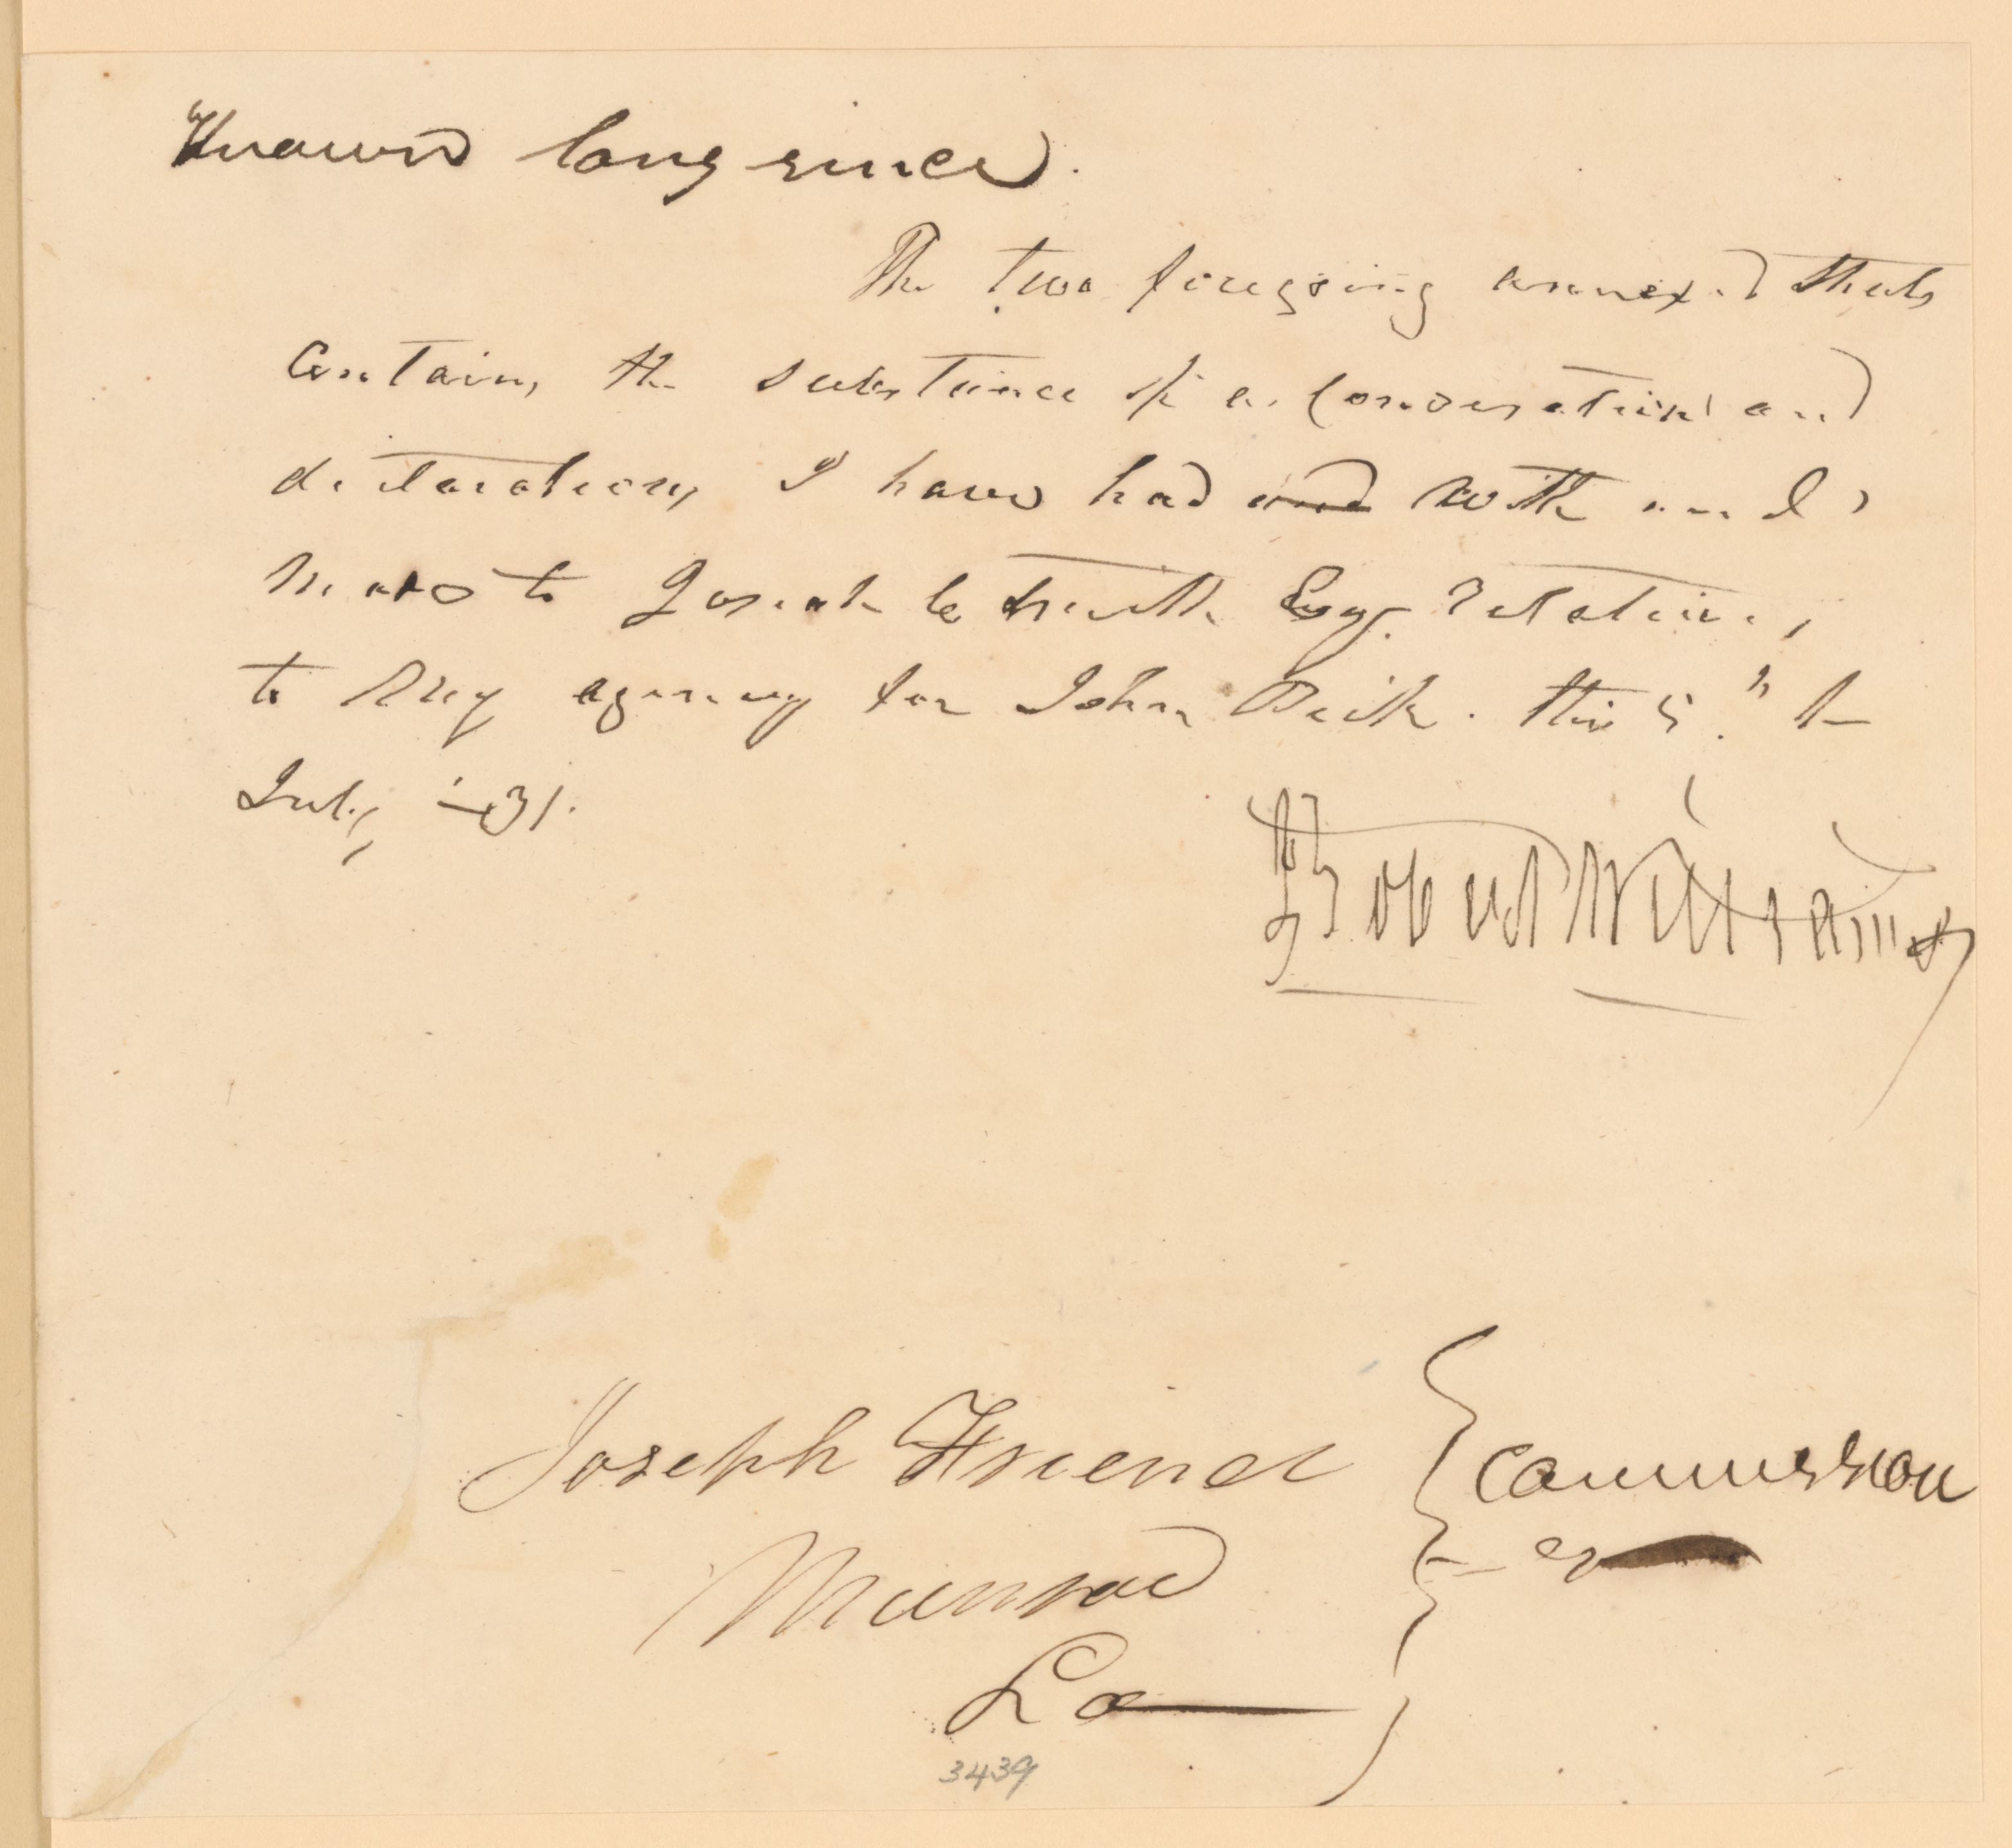 Known long since.
The two foregoing annexed sheets
Contain, the substance of a Conversation and
declaration, I have had and with and
made to Josiah Smith Esqr. relative,
to my agency for John Peik. this 5th
July, 31.
Robert Williams
Joseph Friend
Commission
er
Munroe
La
3439